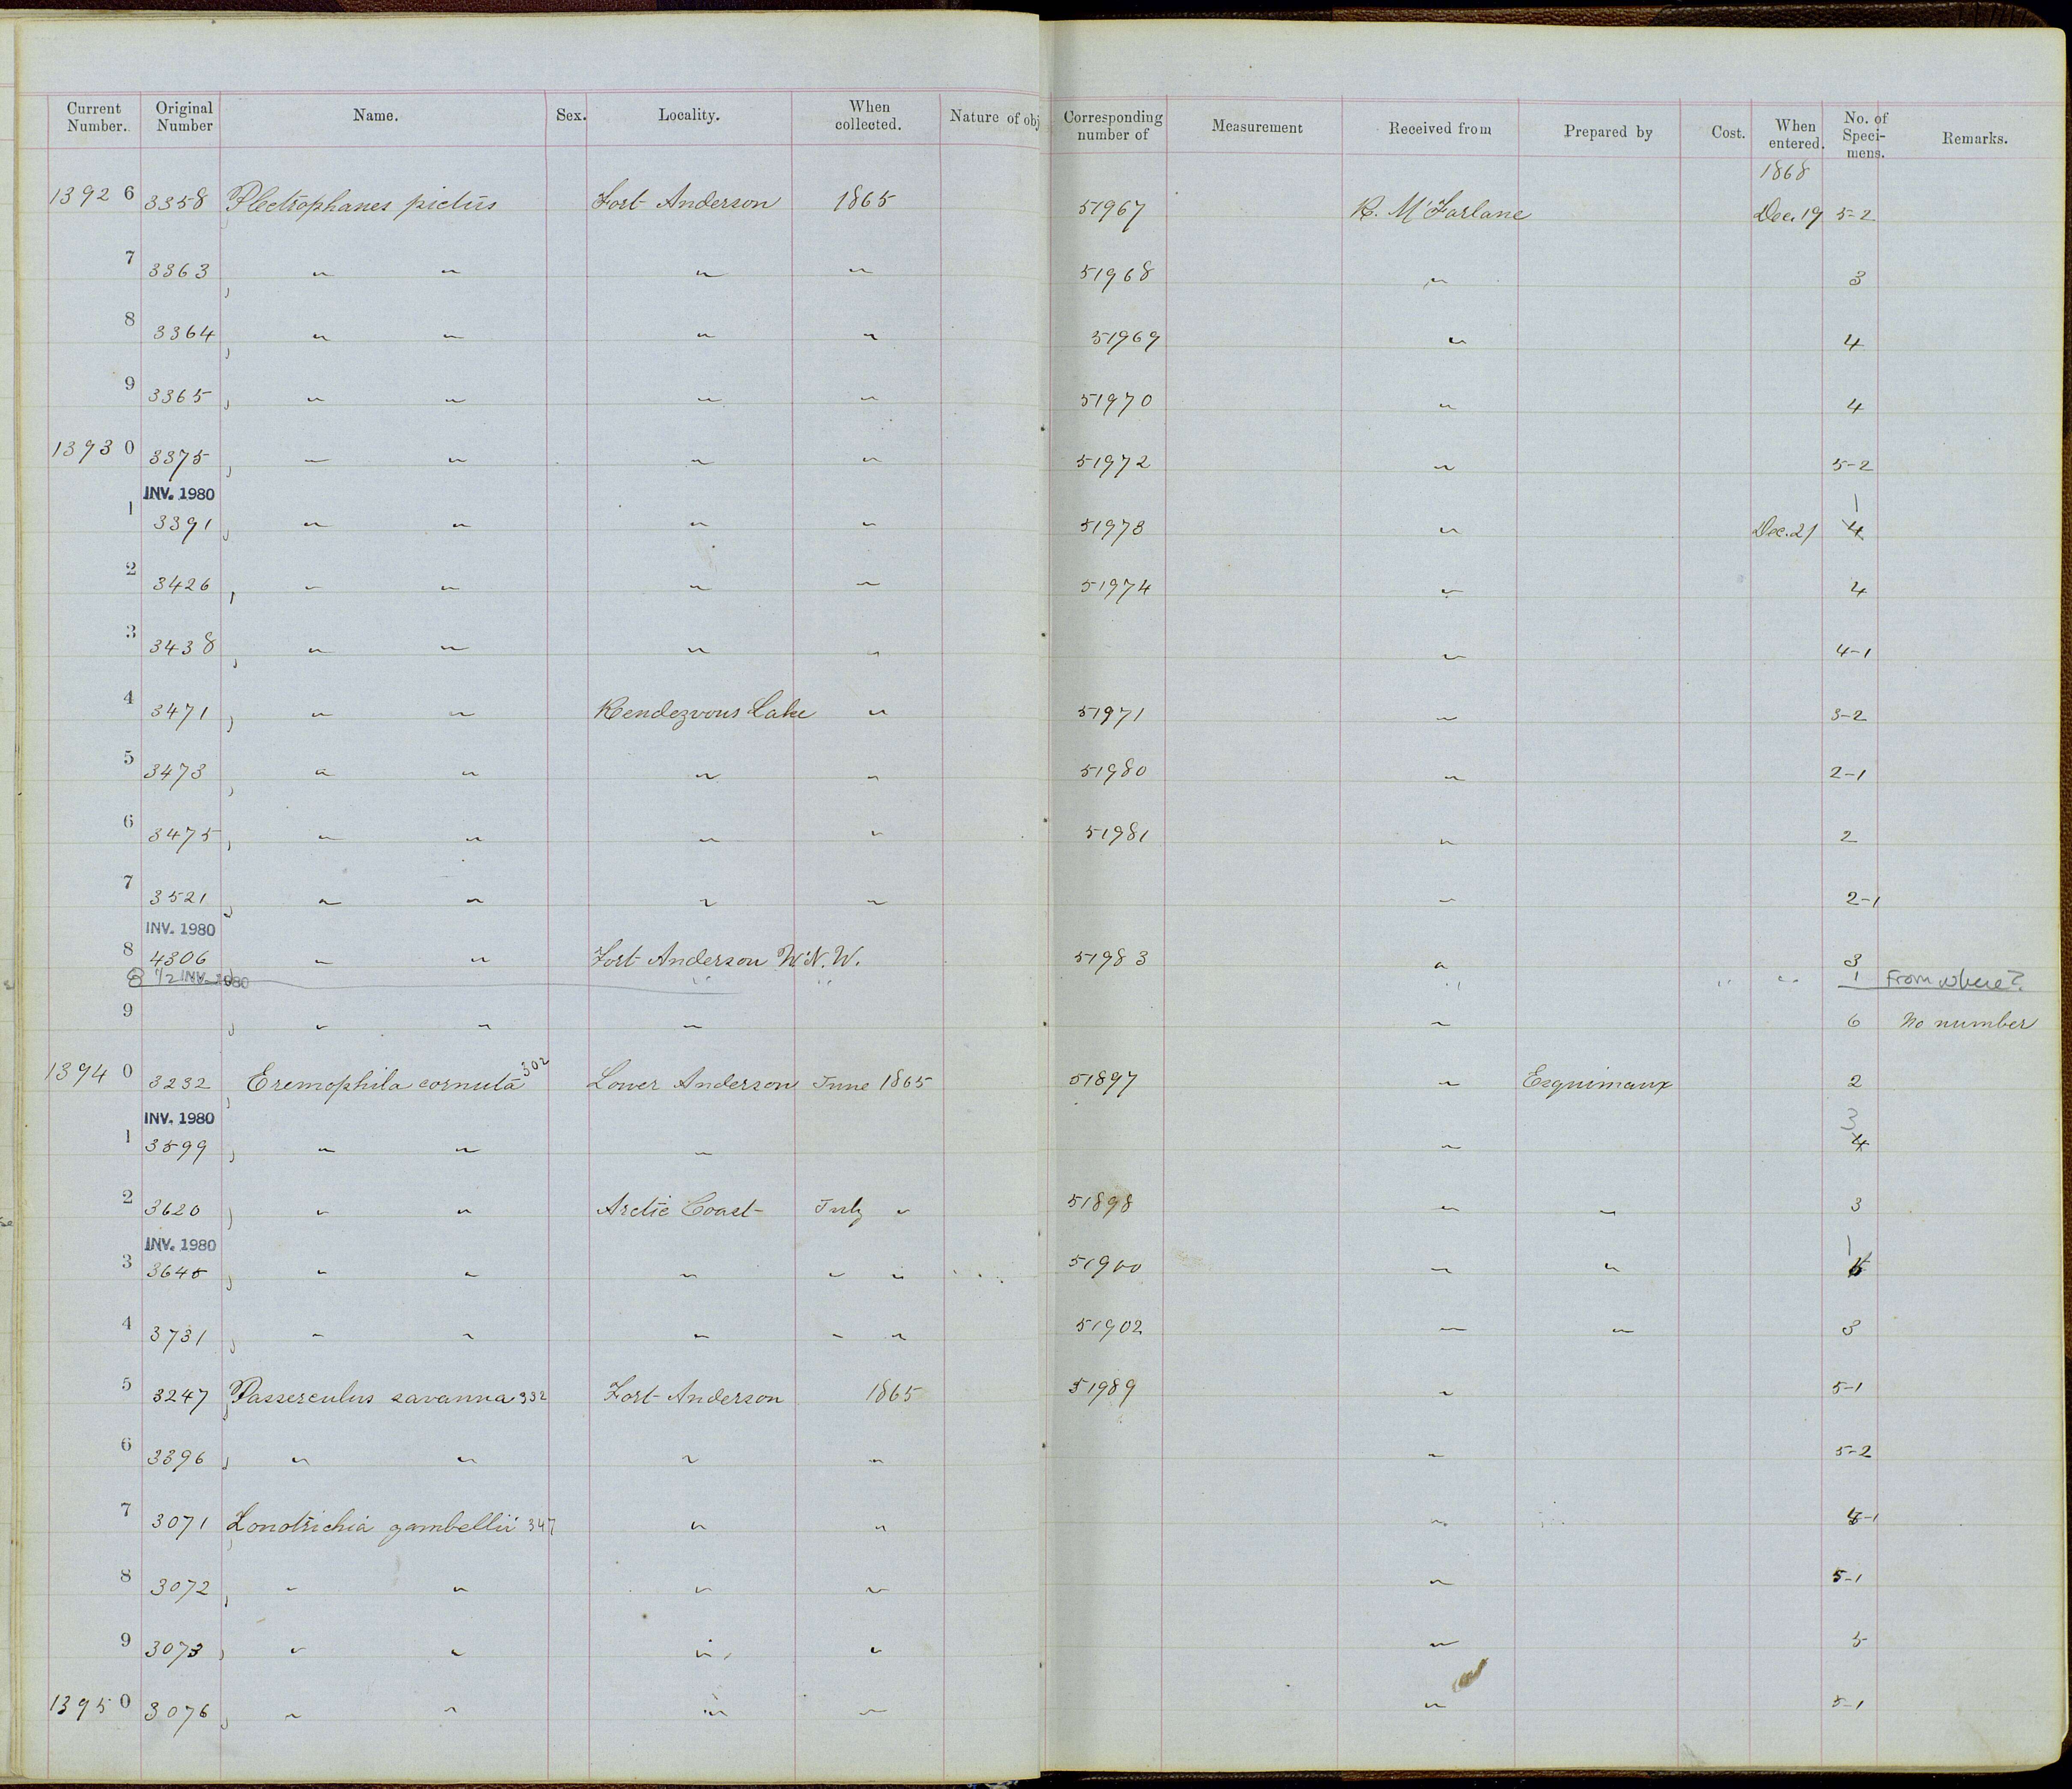 Current Number. Original Number Name. Sex. Locality. When collected. Nature of obj Corresponding number of Measurement Received from Prepared by Cost. When entered. No. of Specimens. Remarks.
1868
13926 3358 Plectrophanes pictus Fort Anderson 1865 51967 R. McFarlane Dec. 19 5-2
7 3363 " " " " 51968 " 3
8 3364 " " " " 51969 " 4
9 3365 " " " " 51970 " 4
13930 3375 " " " " 51972 " 5-2
INV. 1980 1
1 3391 " " " " 51973 " Dec. 21 4
2 3426 " " " " 51974 " 4
3 3438 " " " " " 4-1
4 3471 " " Rendezvous Lake " 51971 " 3-2
5 3473 " " " " 51980 " 2-1
6 3475 " " " " 51981 " 2
7 3521 " " " " " 2-1
INV. 1980
8 4306 " " Fort Anderson W.N.W. 51983 " 3
8 1/2 INV. 1980 " " " " " 1 From where?
9 " " " " 6 No number
13940 3232 Eremophila cornuta 302 Lower Anderson June 1865 51897 " Esquimaux 2
INV. 1980 3
1 3599 " " " " 4
2 3620 " " Arctic Coast July " 51898 " " 3
INV. 1980 1
3 3645 " " " " " 51900 " "
4 3731 " " " " " 51902 " " 3
5 3247 Passerculus savanna 332 Fort Anderson 1865 51989 " 5-1
6 3396 " " " " " 5-2
7 3071 Zonotrichia gambellii 347 " " " 4-1
8 3072 " " " " " 5-1
9 3073 " " " " " 5
13950 3076 " " " " " 5-1